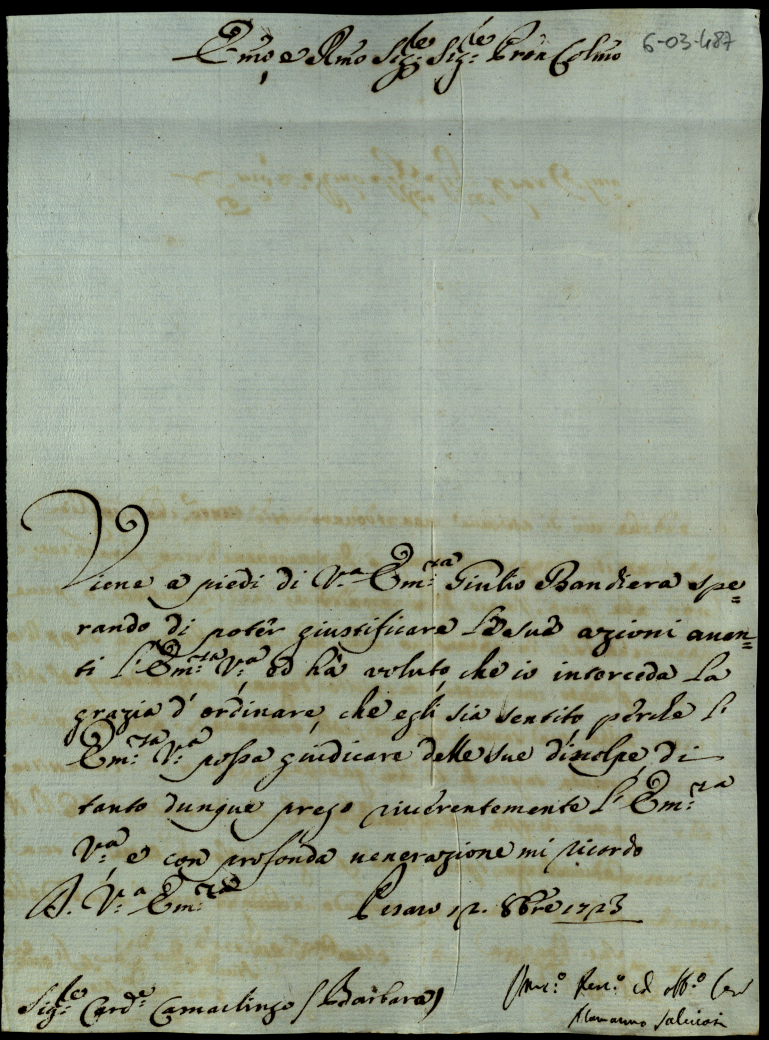 Emo, e Rmo Sigle Sigle Pron Colmo
6-03-487
Viene a piedi di Va. Em.za Giulio Bandiera spe=
rando di poter giustificare le sue azioni auen=
ti l'Em.za V.a ed hà voluto, che io interceda la
grazia d'ordinare, che egli sia sentito perche l'
Em.za V.a possa giudicare delle sue discolpe, di
tanto dunque prego riuerentemente l'Em.za
V.a, e con profonda uenerazione mi ricordo
A. V.a Em.za Pesaro 12. 8bre 1723
Sigle Card.e Camarlingo (Barbara)
Salviati